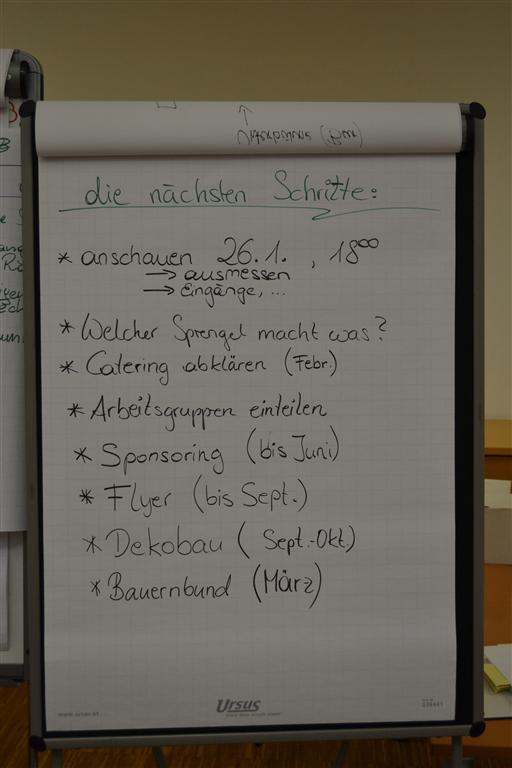 die nächsten Schritte:
* anschauen 26.1., 18⁰⁰
→ ausmessen
→ Eingänge, ...
* Welcher Sprengel macht was?
* Catering abklären (Febr.)
* Arbeitsgruppen einteilen
* Sponsoring (bis Juni)
* Flyer (bis Sept.)
* Dekobau (Sept.-Okt.)
* Bauernbund (März)
www.ursus.at
Ursus